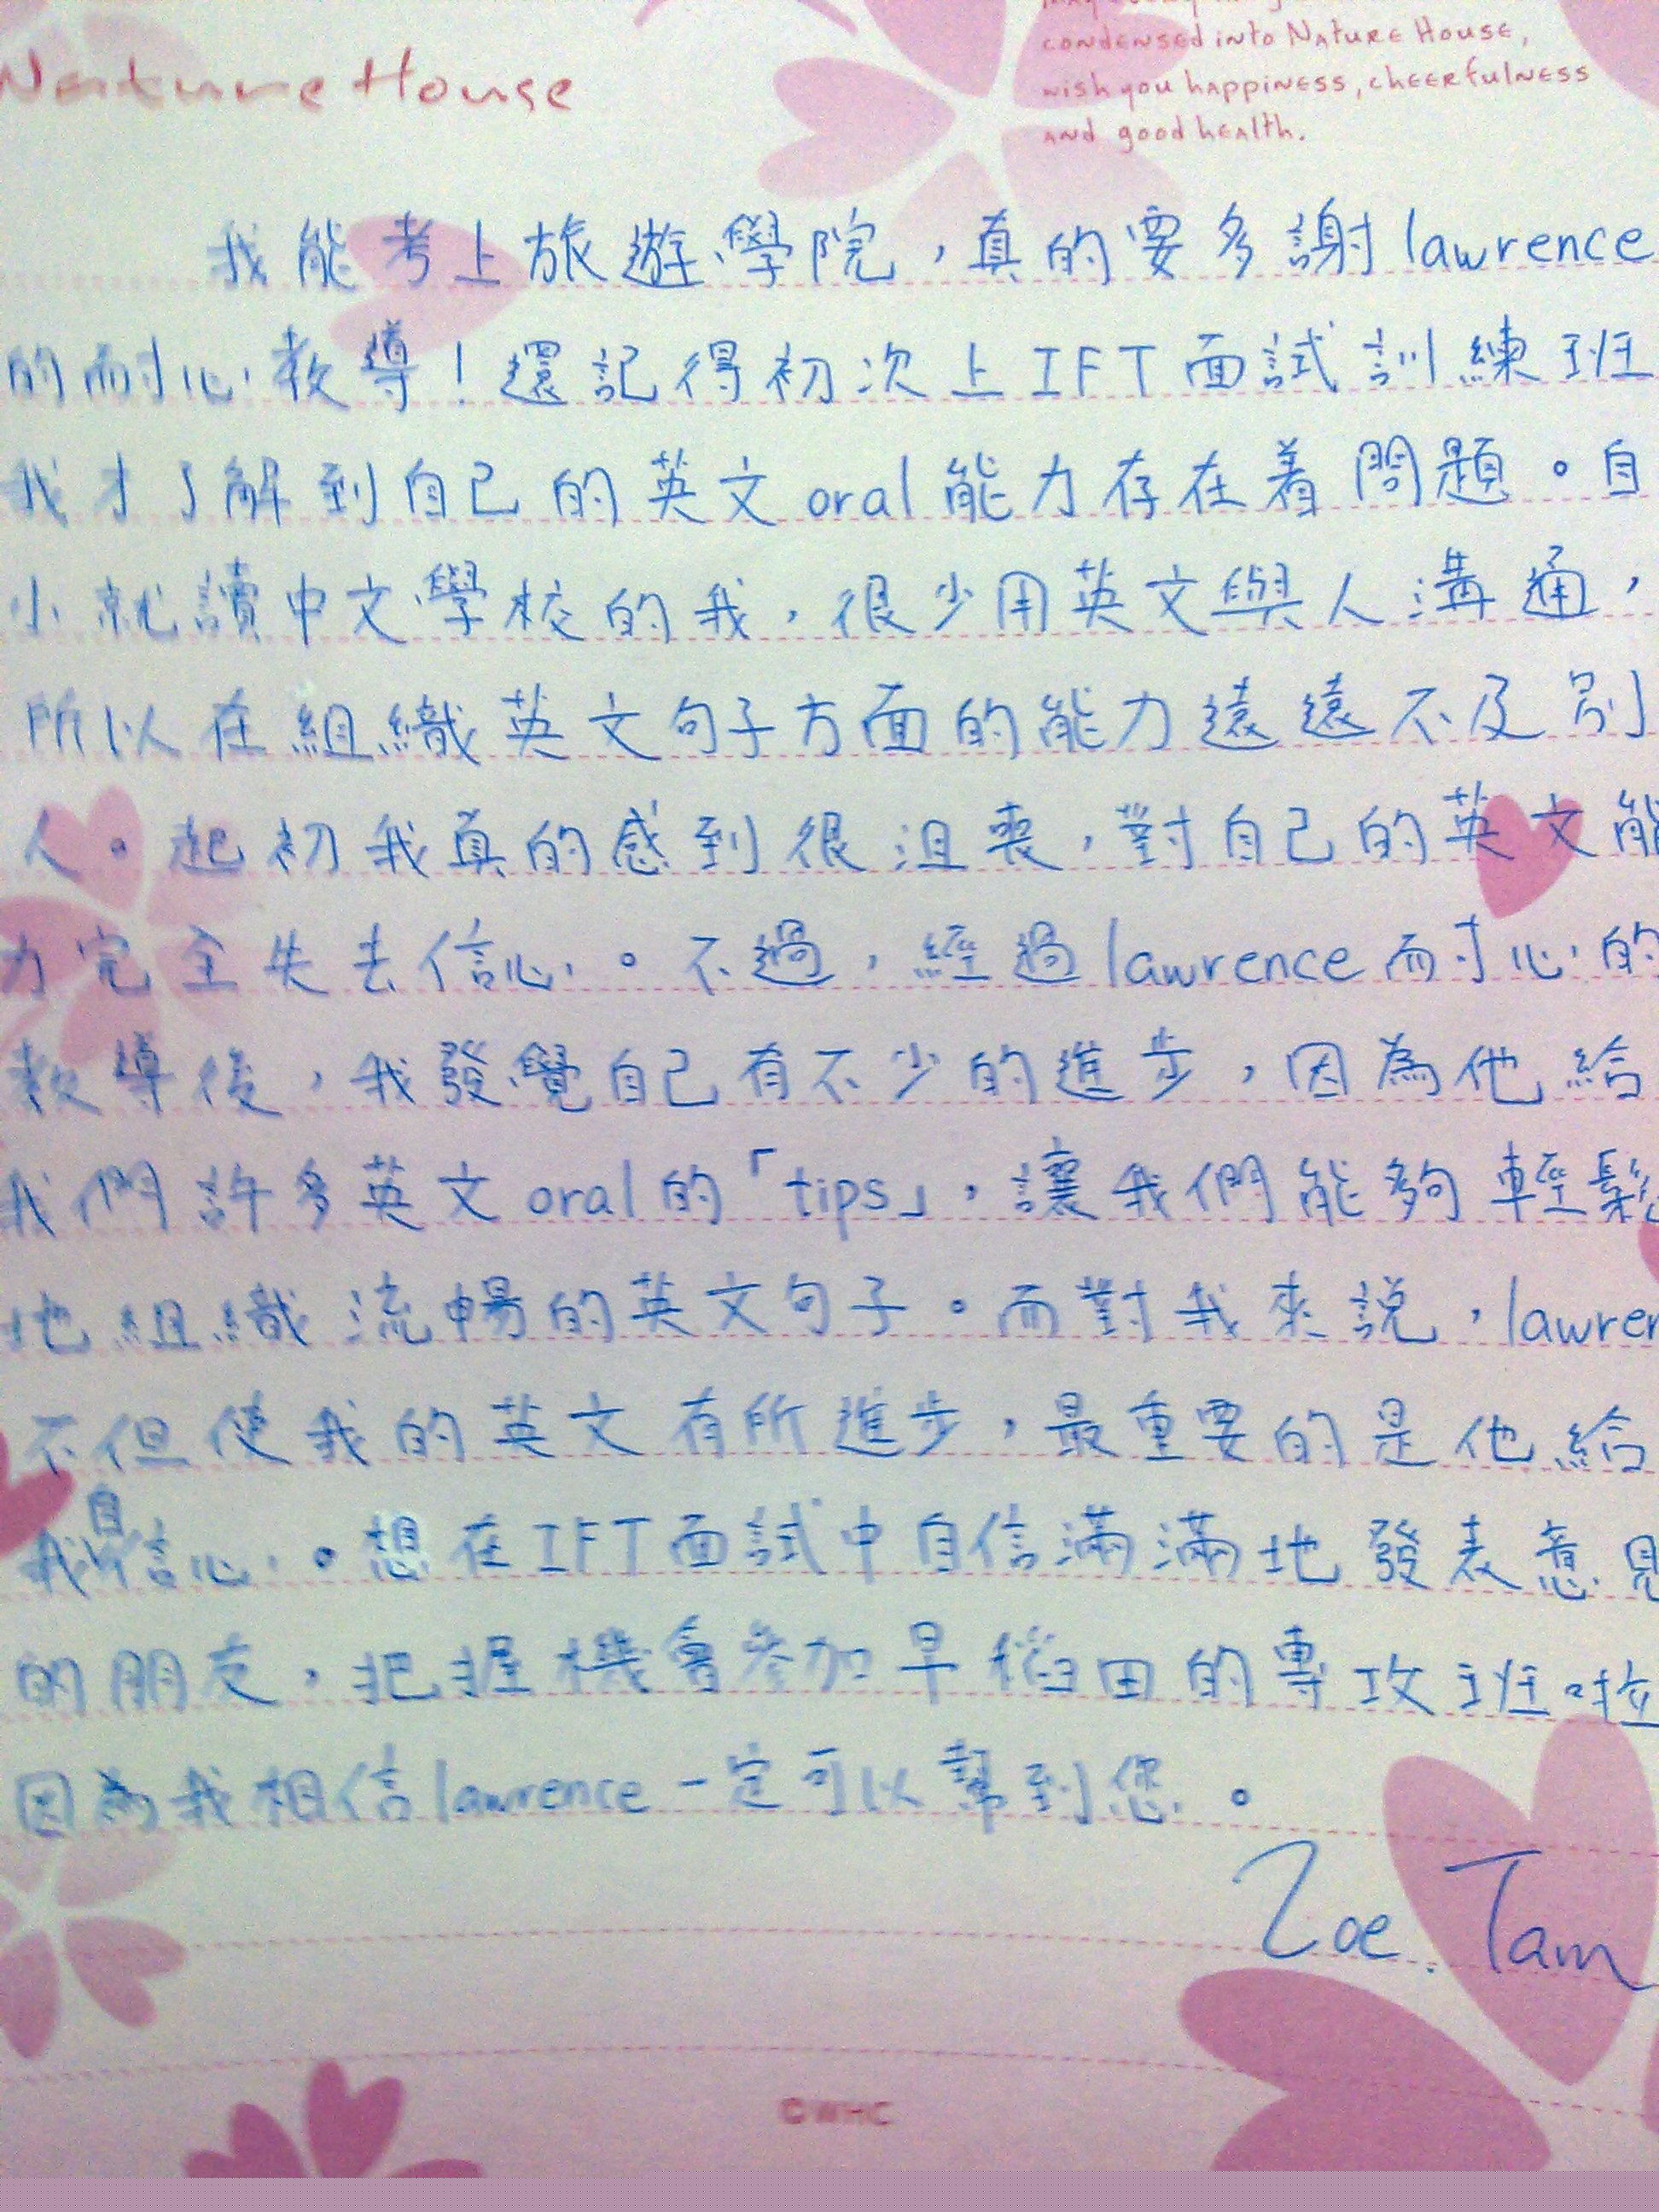 Nature House
condensed into Nature House,
wish you happiness, cheerfulness
and good health.
我能考上旅遊學院，真的要多謝lawrence
的耐心教導！還記得初次上IFT面試訓練班
我才了解到自己的英文oral能力存在着問題。自
小就讀中文學校的我，很少用英文與人溝通，
所以在組織英文句子方面的能力遠遠不及別
人。起初我真的感到很沮喪，對自己的英文能
力完全失去信心。不過，經過lawrence耐心的
教導後，我發覺自己有不少的進步，因為他給
我們許多英文oral的「tips」，讓我們能夠輕鬆
地組織流暢的英文句子。而對我來說，lawren
不但使我的英文有所進步，最重要的是他給
我自信心。想在IFT面試中自信滿滿地發表意見
的朋友，把握機會參加早稻田的專攻班啦
因為我相信lawrence一定可以幫到您。
Zoe. Tam
©WHC